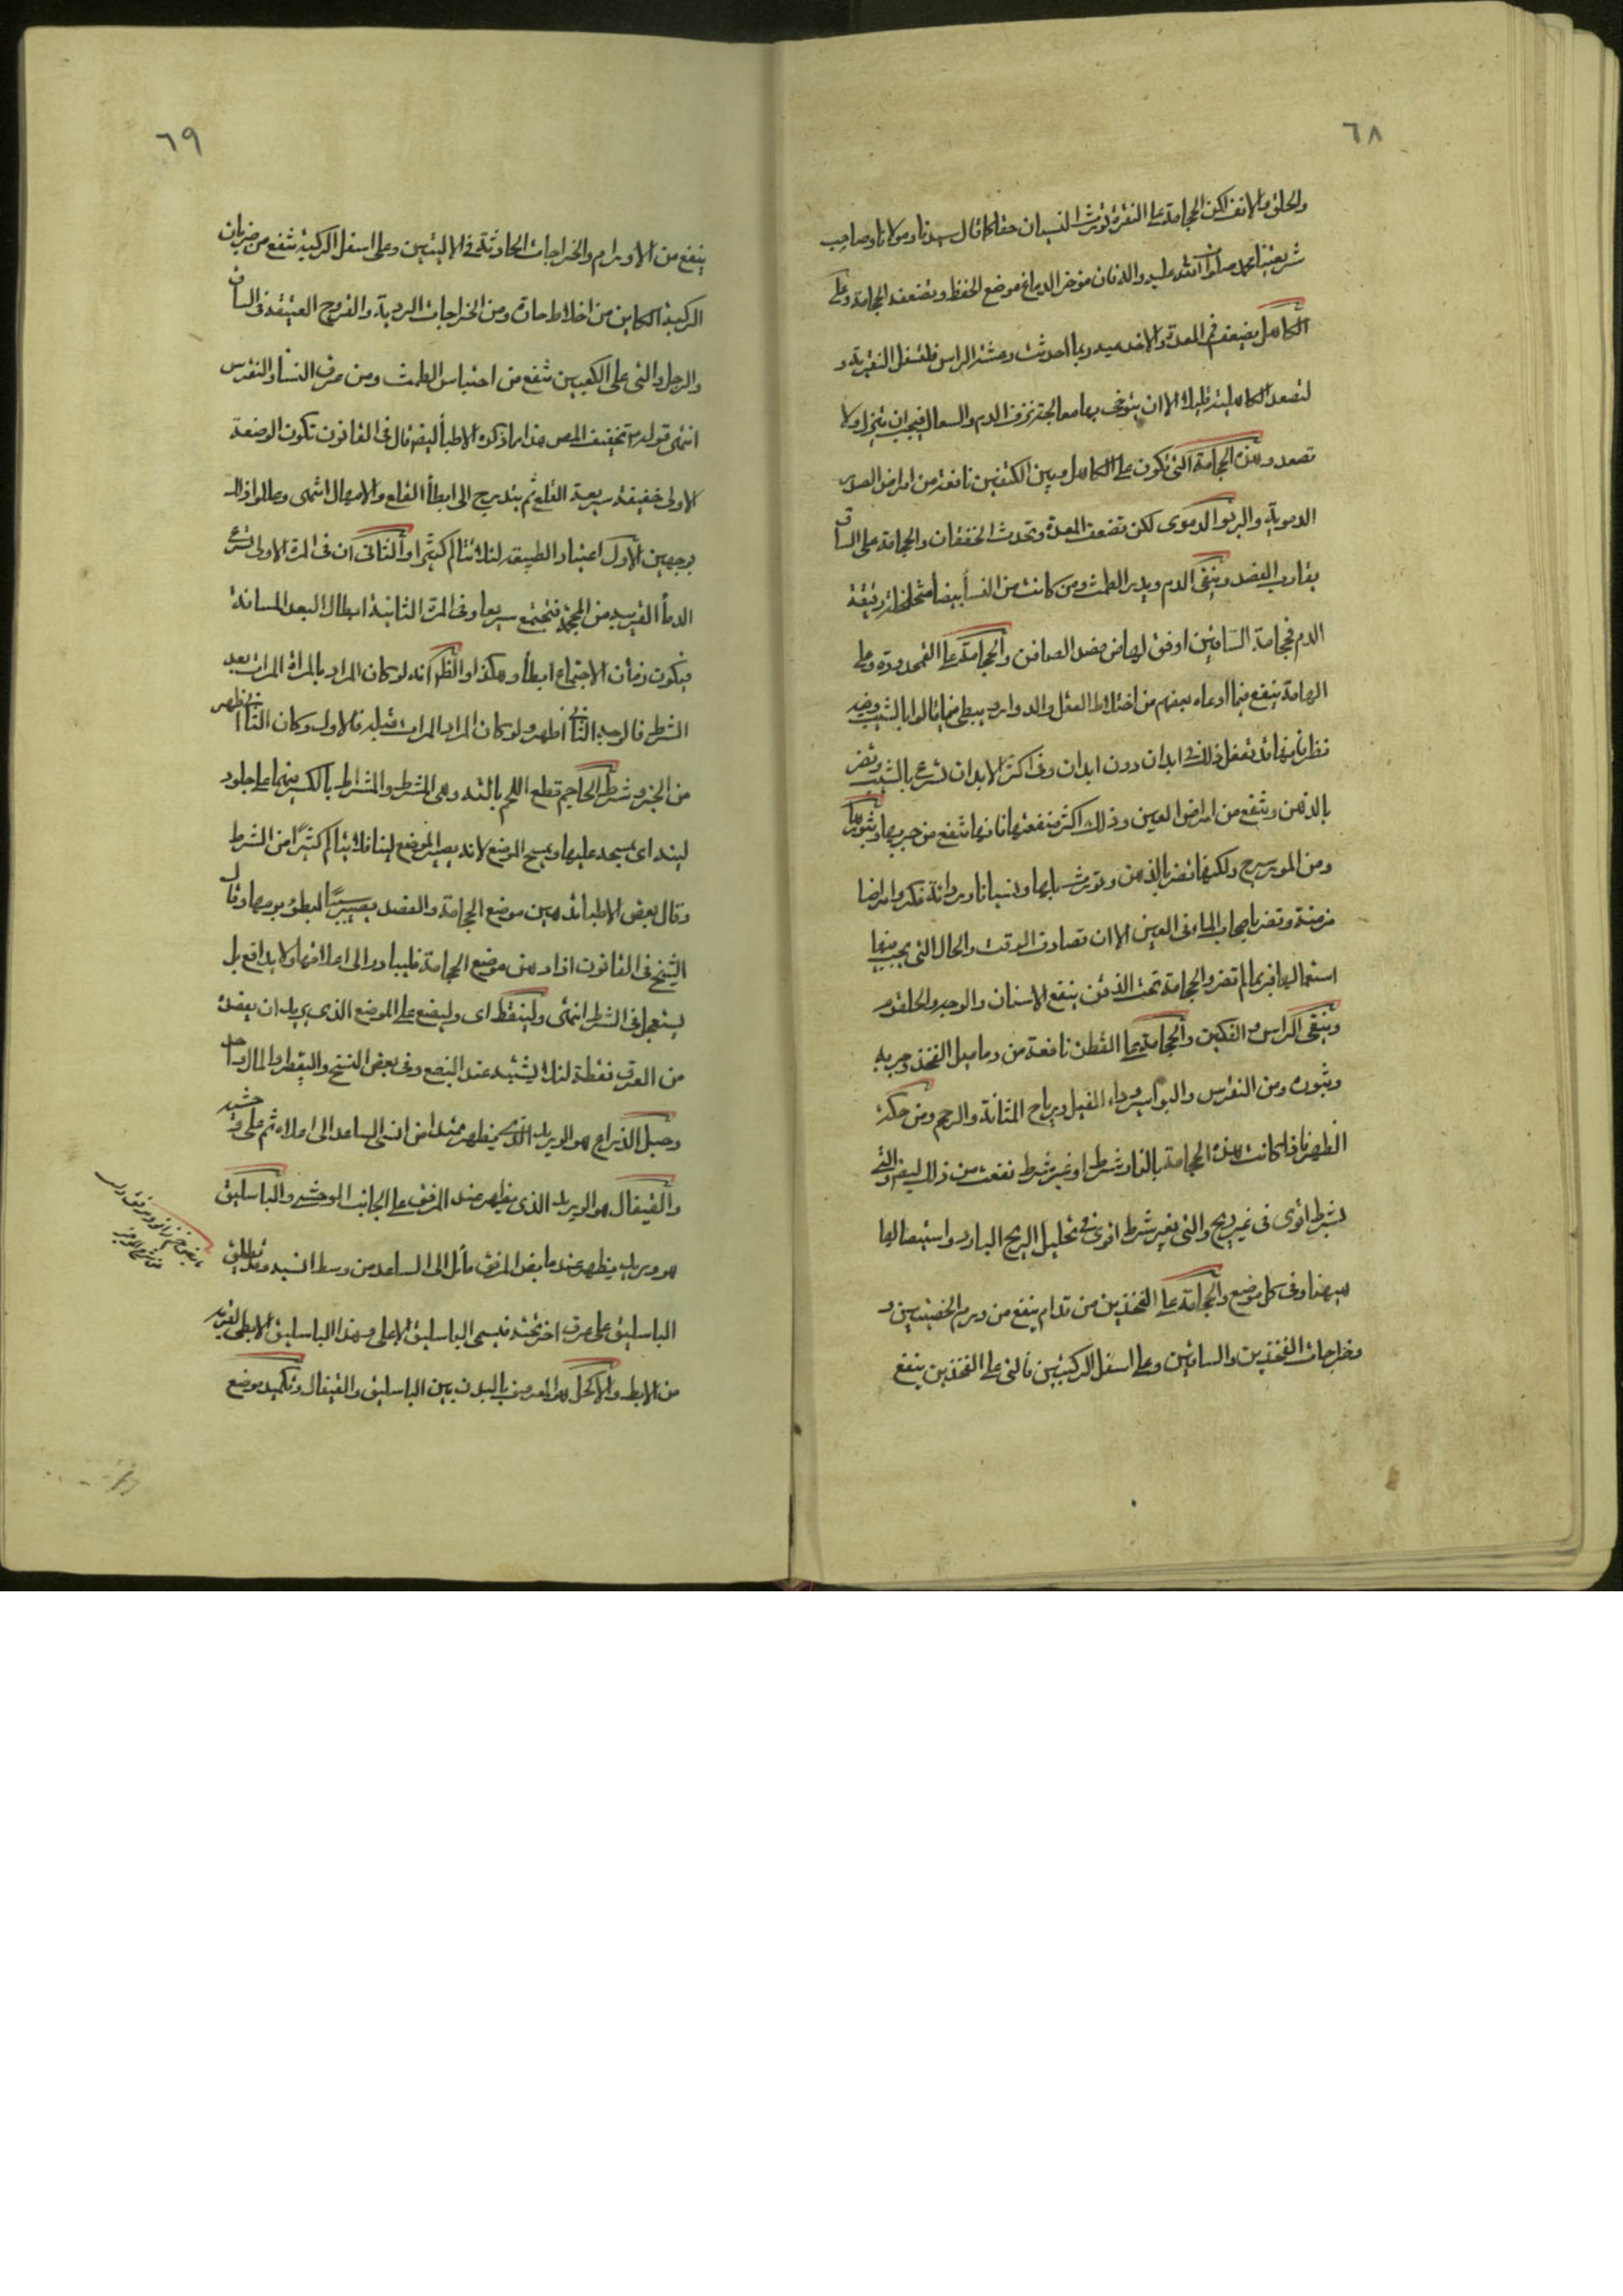 ٦٨
والحلق والانف لكن الحجامة على النقرة تورث النسيان حقا كما قال سيدنا ومولانا وصاحب
شريعتنا محمد صلوات الله عليه واله فان موخر الدماغ موضع الحفظ ويضعفه الحجامة وعلى
الكاهل يضعف فم المعدة والاخدعية ربما احدثت رعشة الراس فلتسفل النقرية و
لتصعد الكاهلية قليلا الا ان يتوخى بها معالجة نزف الدم والسعال فيجب ان تنزل ولا
تصعد وهذه الحجامة التى تكون على الكاهل وبين الكتفين نافعة من امراض الصدر
الدموية والربو الدموى لكن تضعف المعدة وتحدث الخفقان والحجامة على الساق
يقارب الفصد وينقى الدم ويدر الطمث ومن كانت من النسا بيضا متخلخلة رقيقة
الدم فحجامة الساقين اوفق لها من فصد الصافن والحجامة على القمحدوة وعلى
الهامة ينفع فيما ادعاه بعضهم من اختلاط العقل والدوار ويبطى فيما قالوا بالشيب وفيه
نظر فانها قد تفعل ذلك فى ابدان دون ابدان وفى اكثر الابدان تسرع بالشيب وتضر
بالذهن وينفع من امراض العين وذلك اكثر منفعتها فانها تنفع من جربها وبثورها
ومن المورسرج ولكنها تضر بالذهن وتورث بلها ونسيانا ورداءة فكر وامراضا
مزمنة وتضر باصحاب الماء فى العين الا ان تصادف الوقت والحال التى يجب فيها
استعمالها فربما لم تضر والحجامة تحت الذقن ينفع الاسنان والوجه والحلقوم
وينقى الراس والفكين والحجامة على القطن نافعة من دماميل الفخذ وجربه
وبثوره ومن النقرس والبواسير وداء الفيل ورياح المثانة والرحم ومن حكة
الظهر فاذا كانت هذه الحجامة بالنار بشرط او غير شرط نفعت من ذلك ايضا والتى
بشرط اقوى فى غير ريح والتى بغير شرط اقوى فى تحليل الريح البارد واستيصالها
هيهنا وفى كل موضع والحجامة على الفخذين من قدام ينفع من ورم الخصيتين و
خراجات الفخذين والساقين وعلى اسفل الركبتين فالتى على الفخذين ينفع
٦٩
ينفع من الاورام والخراجات الحادثة فى الاليتين وعلى اسفل الركبة تنفع من ضربان
الركبة الكاين من اخلاط حادة ومن الخراجات الردية والقروح العتيقة فى الساق
والرجل والتى على الكعبين تنفع من احتباس الطمث ومن عرق النسا والنقرس
انتهى قوله تخفيف المص هذا مما ذكره الاطبا ايضا قال فى القانون تكون الوضعة
الاولى خفيفة سريعة القلع ثم يتدرج الى ابطأ القلع والامهال انتهى وعللوا ذلك
بوجهين الاول اعتياد الطبيعة لئلا تتالم كثيرا والثانى ان فى المرة الاولى تسرع
الدما القريبة من المحجمة فتجتمع سريعا وفى المرة الثانية ابطا لبعد المسافة
فيكون زمان الاجتماع ابطأ وهكذا والظهر انه لو كان المراد بالمرة المرات بعد
الشرط فالوجه الثانى اظهر ولو كان المراد المرات قبله فالاول وكان الثانى اظهر
من الخبر وشرط الحاجم قطع اللحم بالته وهى المشرط والمشراط بالكسر فيهما على جلود
لينه اى يمسحه عليها ويمسح الموضع لانه يصير الموضع لينا فلا يتالم كثيرا من الشرط
وقال بعض الاطبا تدهين موضع الحجامة والفصد يصير سببا لبطؤ برءهما وقال
الشيخ فى القانون اذا دهن موضع الحجامة فليبادر الى اعلاقها ولا يدافع بل
يستعجل فى الشرط انتهى ولينقط اى وليضع على الموضع الذى يريد ان يفصده
من العرق نقطة لئلا يشتبه عند البضع وفى بعض النسخ وليقطر والمال واحد
وحبل الذراع هو الوريد الذى يظهر ممتدا من انسى الساعد الى اعلاه ثم على وحشيه
والقيفال هو الوريد الذى يظهر عند المرفق على الجانب الوحشى والباسليق
هو وريد يظهر عند مابض المرفق مائل الى الساعد من وسط انسيه وقد يطلق
الباسليق على عرق اخر تحته فيسمى الباسليق الاعلى وهذا الباسليق الابطى لقربه
من الابط والاكحل هو المعروف بالبدن بين الباسليق والقيفال وتكميد موضع